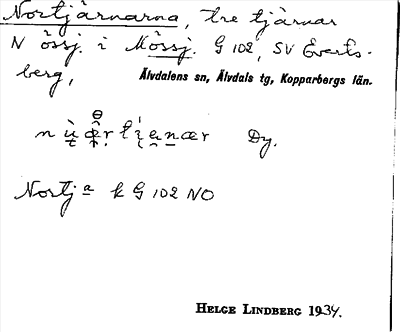 Nortjärnarna, tre tjärnar
N össj. i Mössj. G 102, SV Everts-
berg, Älvdalens sn, Älvdals tg, Kopparbergs län.
Dy.
Nortja k G 102 NO
HELGE LINDBERG 1934.